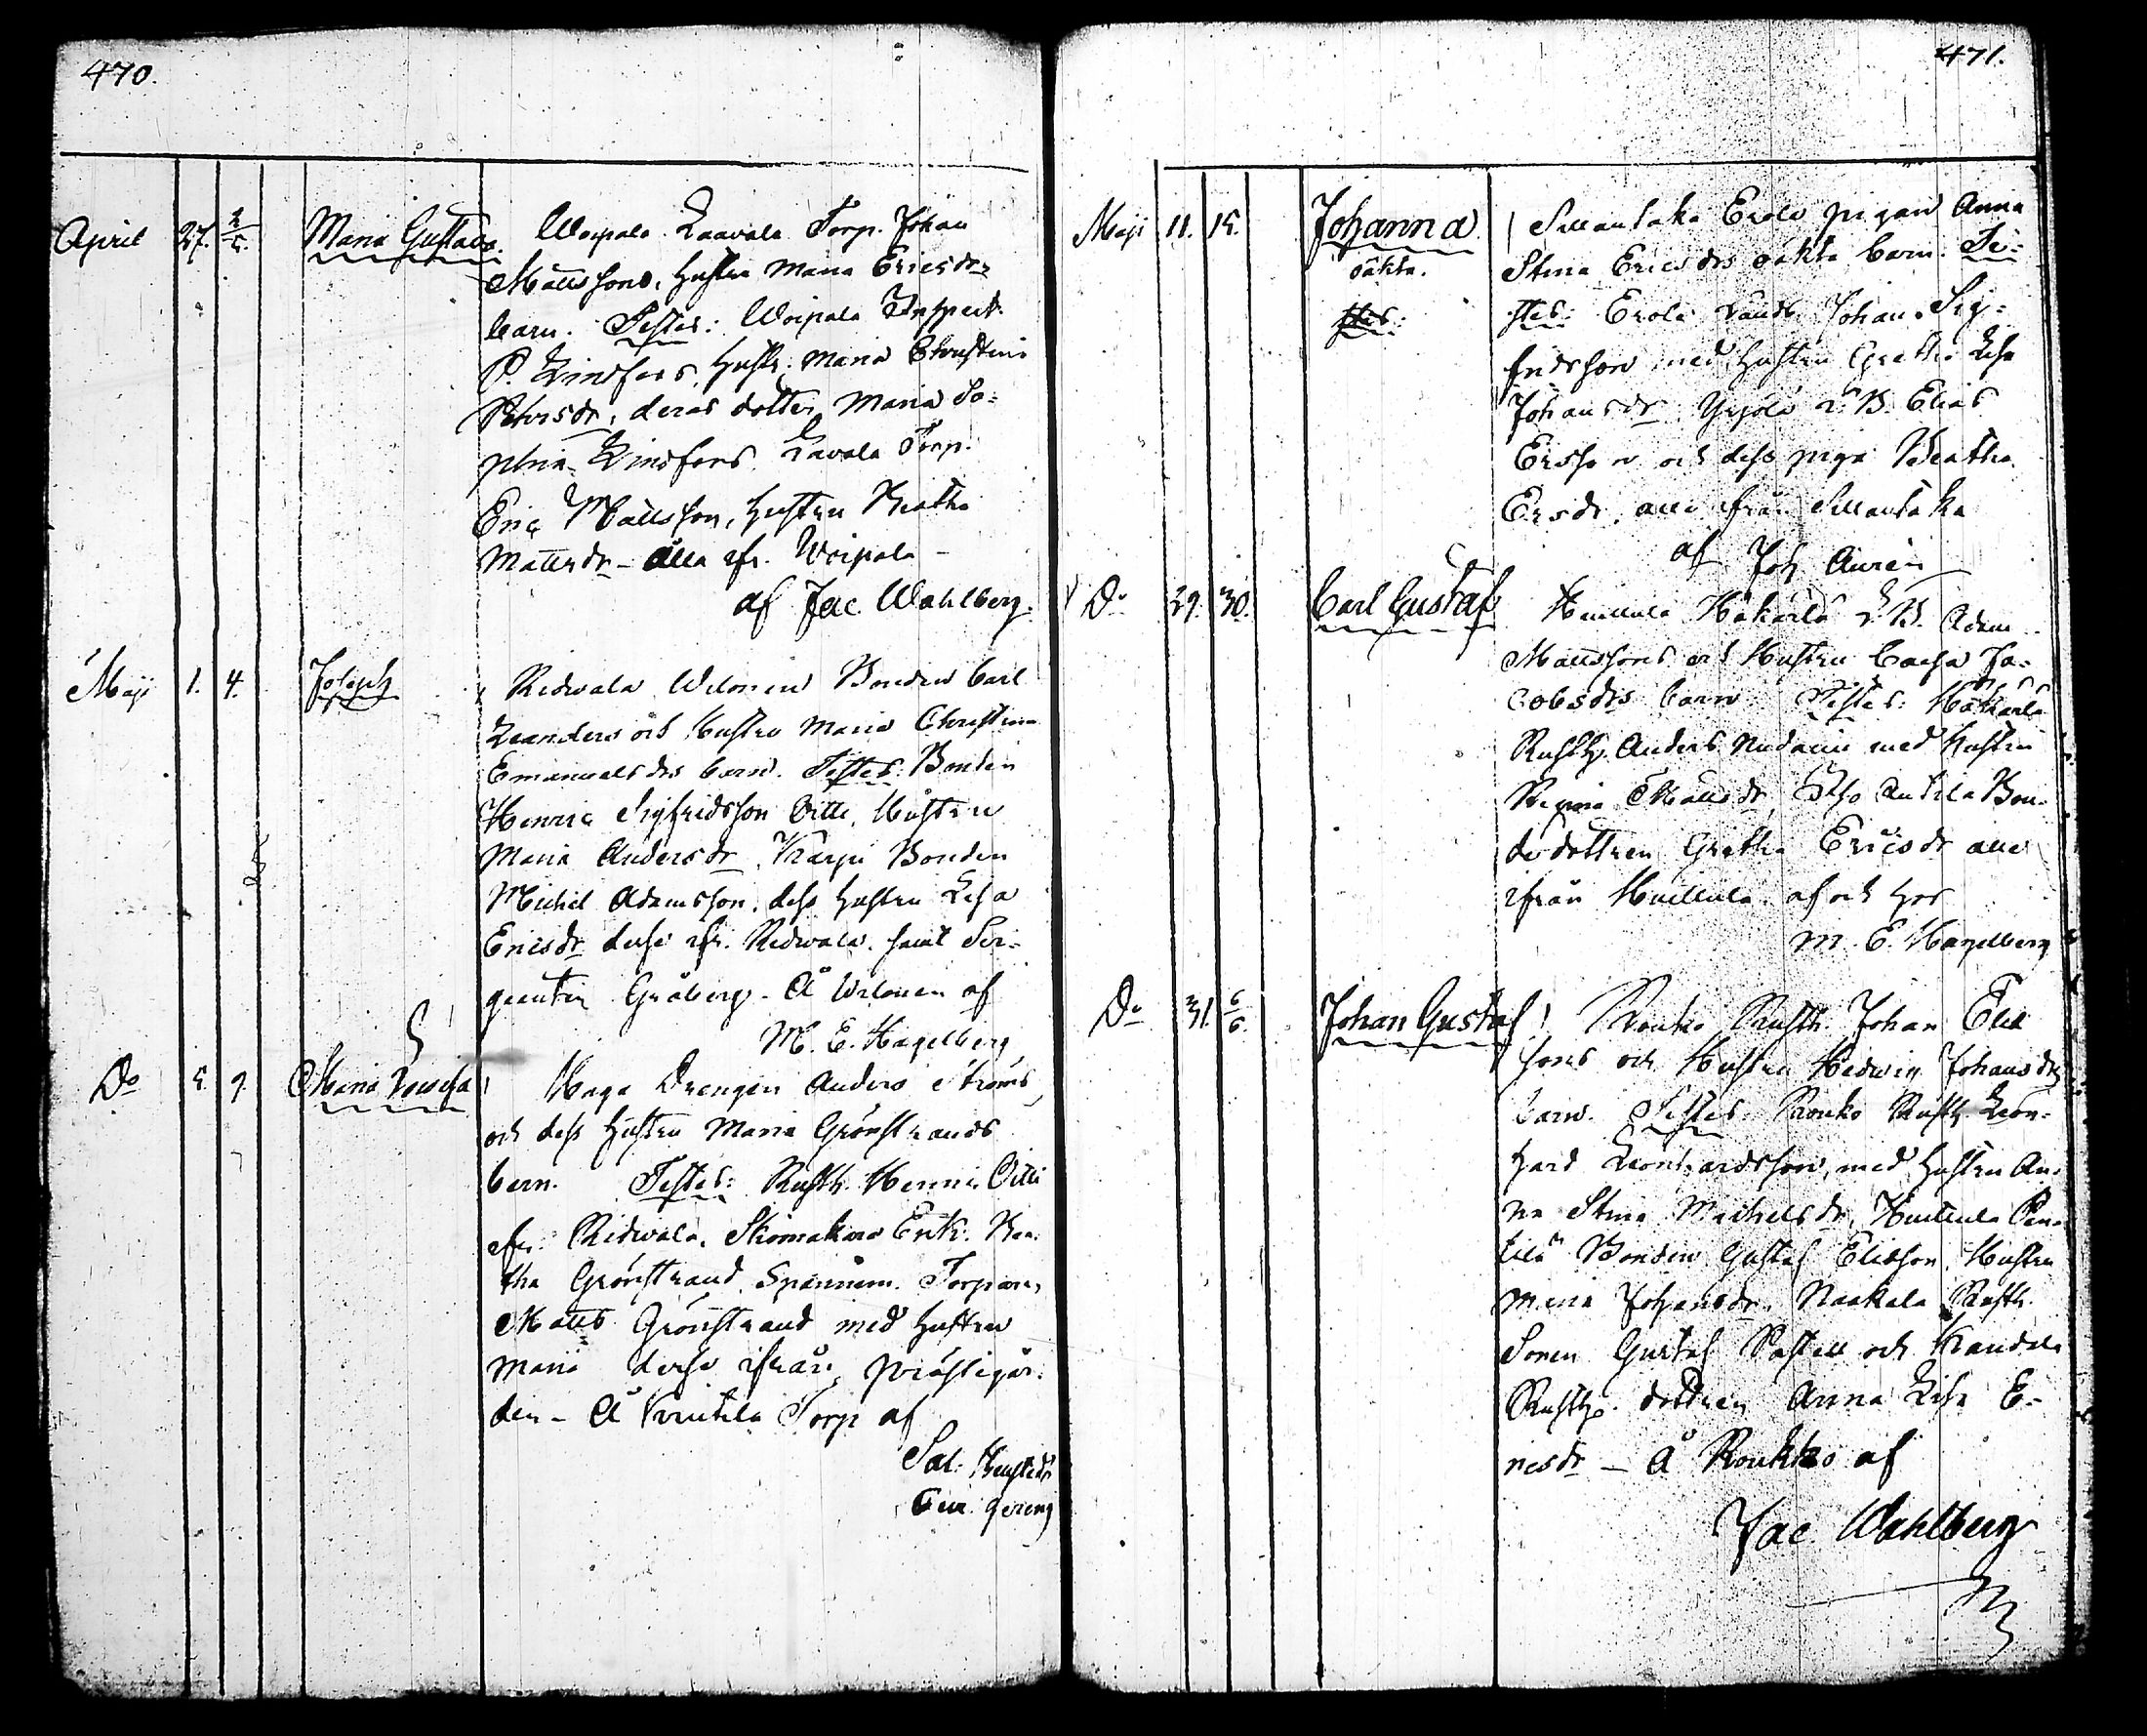 470.
April 27. 2/5. Maria Gustava. Woipala Laavala Torp. Johan
Mattssons, Hustru Maria Ericsdrs
barn. Testes: Woipala Inspect.
P. Lindfors, Hustr. Maria Christina
Petersdr, deras dotter Maria So=
phia Lindfors Lavala Torp.
Eric Mattsson, Hustru Beatha
Mattsdr – Alla ifr. Woipala –
af Jac Wahlberg.
Maji 1. 4. Joseph Ridvala Bonden Carl
Leanders och Hustru Maria Christina
Emanuelsdrs barn. Testes: Bonden
Henric Sigfridsson Ville, Hustrun
Maria Andersdr, Karpu Bonden
Michel Adamsson, dess Hustru Lisa
Ericsdr desse ifr. Ridvala, samt Ser=
geanten Gråberg – Å af
M. E. Hagelberg
Do 5. 9. Maria Lovisa Haga Drengen Anders Ströms
och dess Hustru Maria Grönstrands
barn. Testes: Rusth. Henric Ville
ifr. Ridvala, Skomakare Erik. Bea=
tha Grönstrand Spannm. Torparen
Matts Grönstrand med Hustrun
Maria desse ifrån prästegår=
den – Å Torp af
Sal.
471.
Maji 11. 15. Johanna Erola pigan Anna
oäkta. Stina Ericsdrs oäkta barn. Te=
stes: Erola Johan Sig=
fridsson med Hustru Gretha Lisa
Johansdr Yrjölä B. Elias
Ersson och dess piga Beatha
Ersdr, alla ifrån
af Joh Aurén
Do 29. 30. Carl Gustaf Huittula Håkarla B. Adam
Mattssons och Hustru Caisa Ja=
cobsdrs barn Testes: Håkarla
Rusth. Anders med Hustru
Regina Mattsdr, Antila Bon=
dedottren Gretha Ericsdr alla
ifrån Huittula af och hos
M. E. Hagelberg
Do 31. 6/6. Johan Gustaf Roukko Rusth. Johan Elia
sons och Hustru Hedwig Johansdrs
barn. Testes: Roukko Rusth. Leon=
hard Leonhardsson, med Hustru An=
na Stina Michelsdr, Huittula Pen=
tilä Bonden Gustaf Eliasson, Hustru
Maria Johansdr, Naakala Rusth.
Sonen Gustaf och
Rusth. dottren Anna Lisa E=
ricsdr – Å Roukko af
Jac Wahlberg